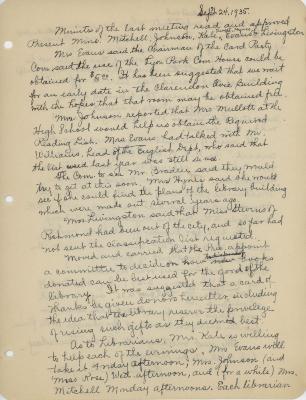 Sept 24, 1935.
Minutes of the last meeting read and approved
Present Mmes. Mitchell, Johnson, Kate, Evans & Livingston
Mrs Evans said the Chairman of the Card Party
Com. said the use of the Lyon Park Com House could be
obtained for $5.00. It has been suggested that we wait
for an early date in the Clarendon Civic Building
with the hopes that that room may be obtained free.
Mrs. Johnson reported that Mrs Mullett at the
High School would help us obtain the Required
Reading List. Mrs Evans had talked with Mr.
Williams, head of the English Dept, who said that
the list used last year was still in use
The Com. to see Mr. Bradley said they would
try to get at this soon. Mrs said she would
see if she could find the plans of the library building
which were made out several years ago.
Mrs Livingston said that Miss of
Richmond had been out of the city, and so far had
not sent the classification list requested
Moved and carried that the Pres. appoint
a committee to decide on how books
donated can be best used for the good of the
library. It was suggested that a card of
thanks be given donors hereafter, including
the idea that the library reserve the privilege
of using such gifts as they deemed best
As to Librarians, Mrs. Kate is willing
to help each of the evenings. Mrs Evans will
take 2 Friday afternoon; Mrs. Johnson (and
Miss Rose) Wed. afternoon, and (for a while) Mrs.
Mitchell Monday afternoons. Each librarian